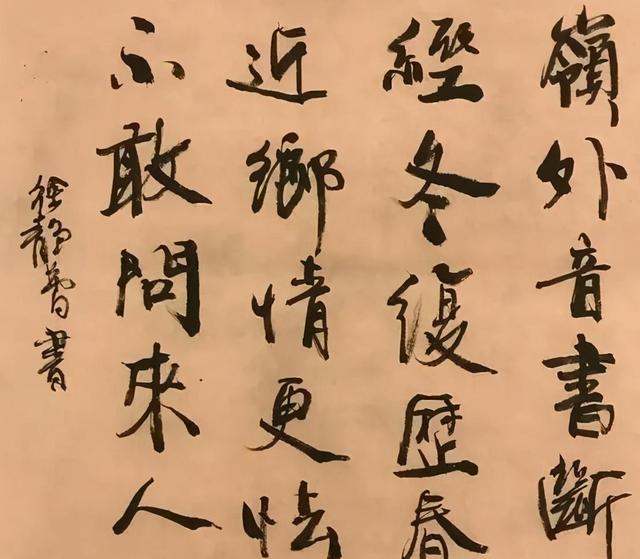 嶺外音書斷
經冬復歷春
近鄉情更怯
不敢問來人
徐靜蕾書